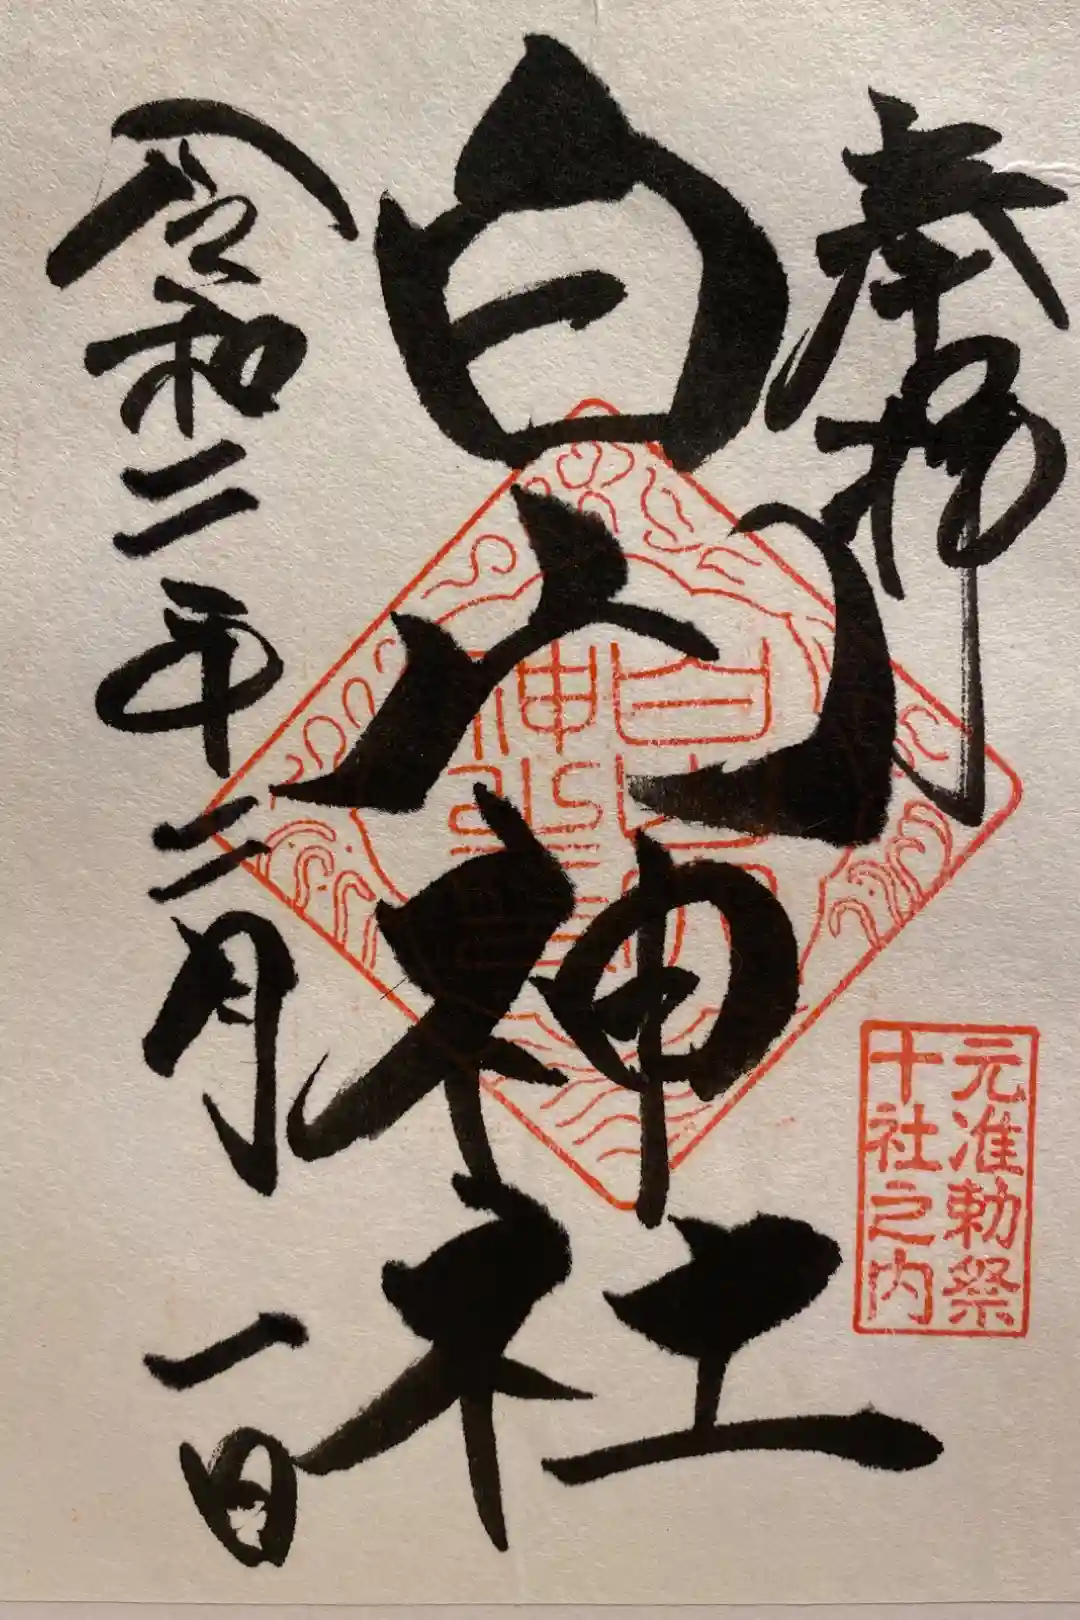 奉拝
白山神社
令和二年二月一日
元准勅祭
十社之内